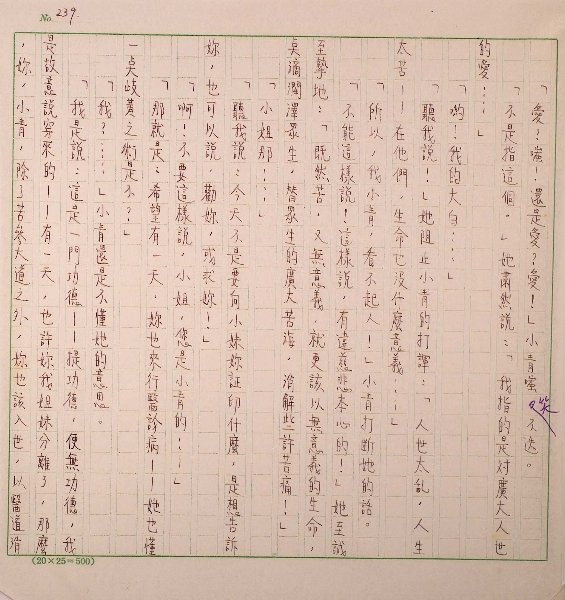 No. 239
「愛?嗤!還是愛?愛!」小青蜜笑不迭。
「不是指這個。」她肅然說:「我指的是對廣大人世
的愛…」
「喲!我的大白…」
「聽我說!」她阻止小青的打諢:「人世太亂,人生
太苦——在他們,生命也沒什麼意義…」
「所以,我小青,看不起人!」小青打斷她的話。
「不能這樣說!這樣說,有違慈悲本心的!」她至誠
至摯地:「既然苦,又無意義,就更該以無意義的生命,
點滴潤澤眾生,替眾生的廣大苦海,消解些許苦痛!」
「小姐那…」
「聽我說:今天不是要向小妹妳証印什麼,是想告訴
妳,也可以說,勸妳,或求妳!」
「啊!不要這樣說,小姐,您是小青的…」
「那就是:希望有一天,妳也來行醫診病——她也懂
一點歧黃之術是不?」
「我?…」小青還是不懂她的意思。
「我是說:這是一門功德——提功德,便無功德,我
是故意說穿來的——有一天,也許妳我姐妹分離了,那麼
,妳,小青,除了苦參大道之外,妳也該入世,以醫道消
(20×25=500)